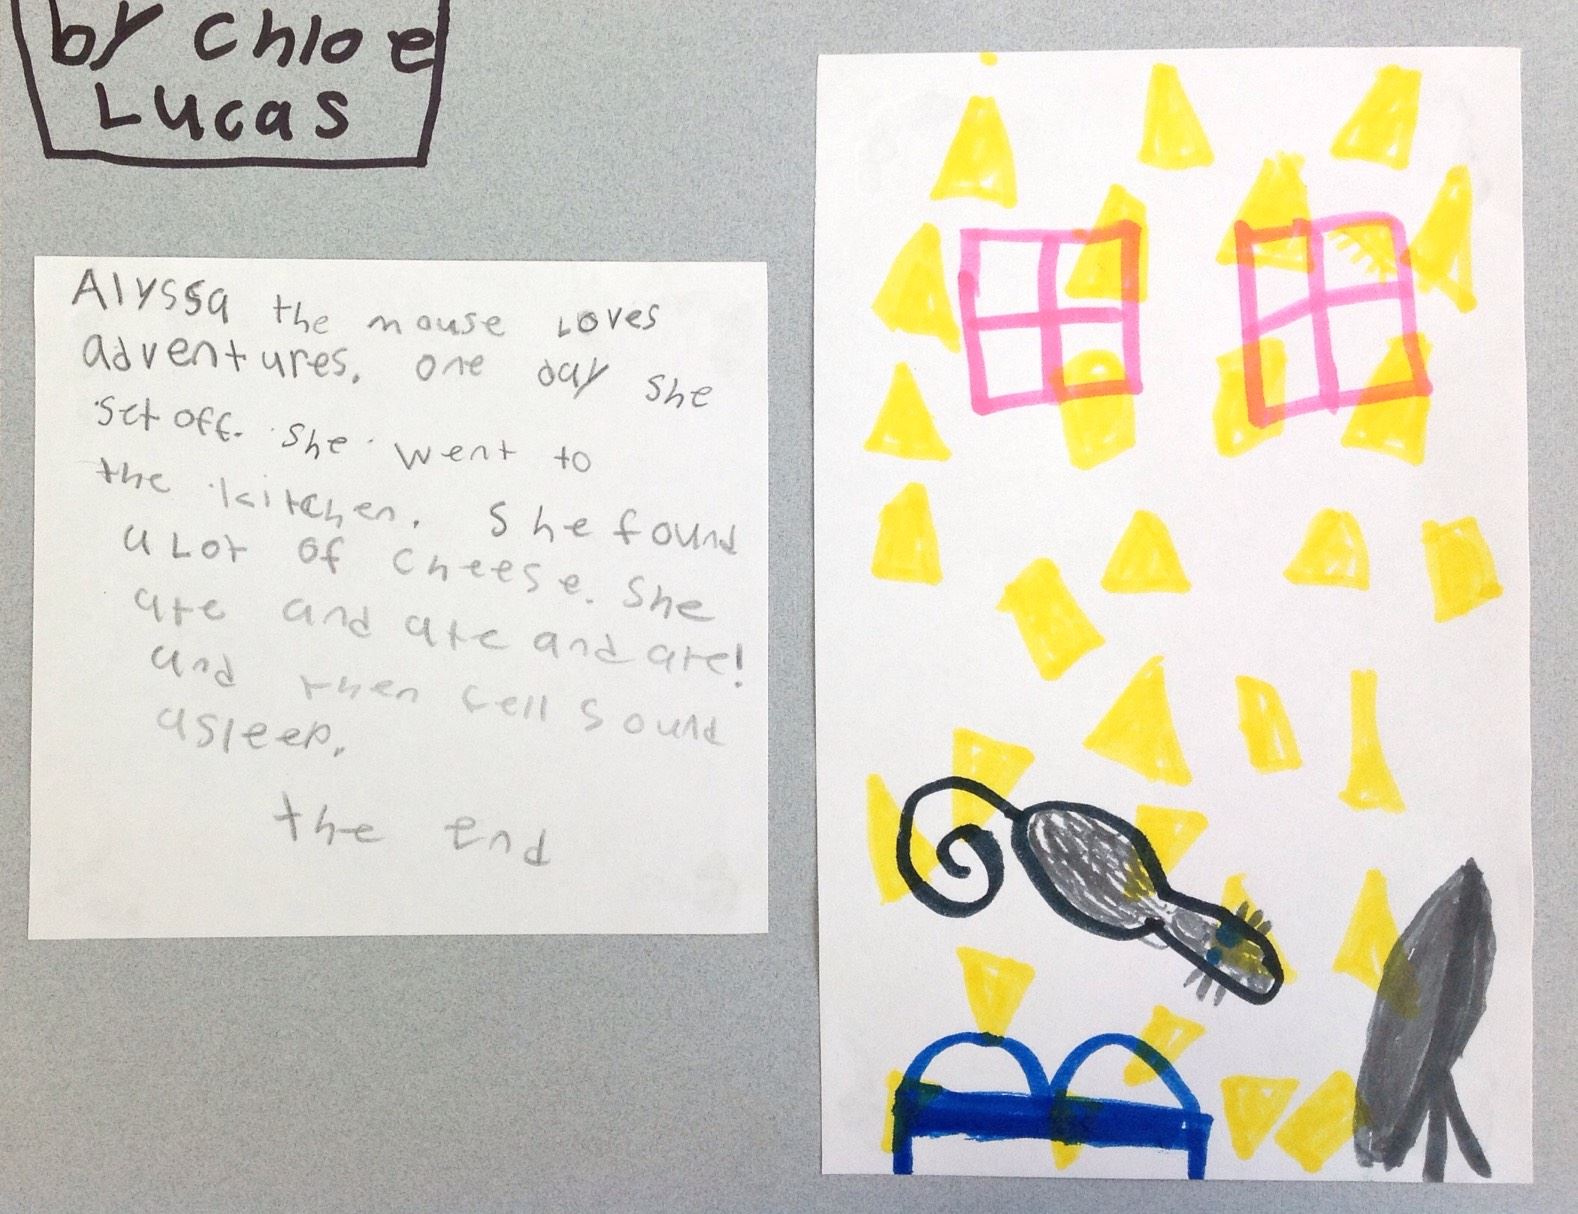 by Chloe
Lucas
Alyssa the mouse Loves
adventures. one day she
set off. she went to
the kitchen. She found
a Lot of cheese. She
ate and ate and ate!
and then fell sound
asleep.
the end